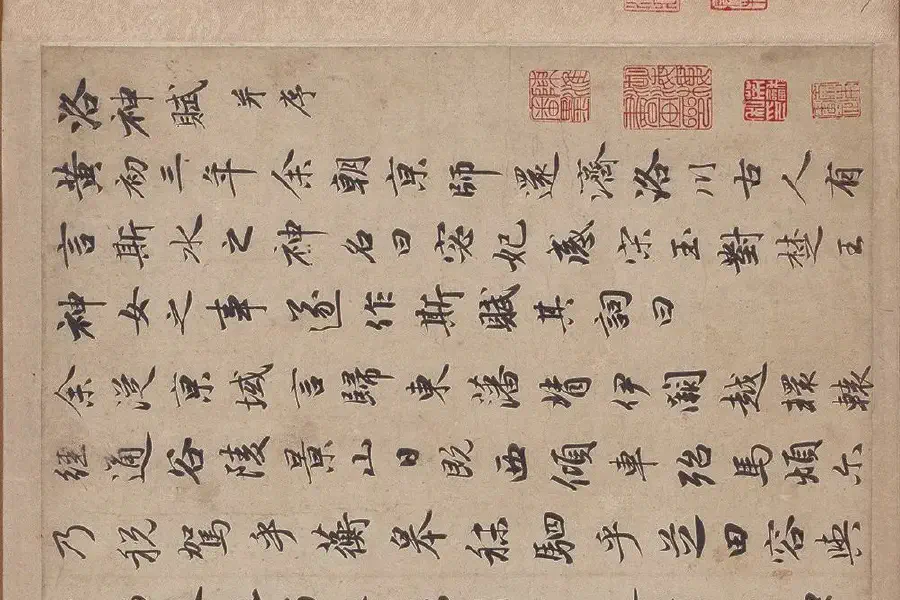 洛神賦并序
黄初三年余朝京師還濟洛川古人有
言斯水之神名曰宓妃感宋玉對楚王
神女之事遂作斯賦其詞曰
余從京域言歸東藩背伊闕越轘轅
經通谷陵景山日既西傾車殆馬煩尓
乃税駕乎蘅皋秣駟乎芝田容與